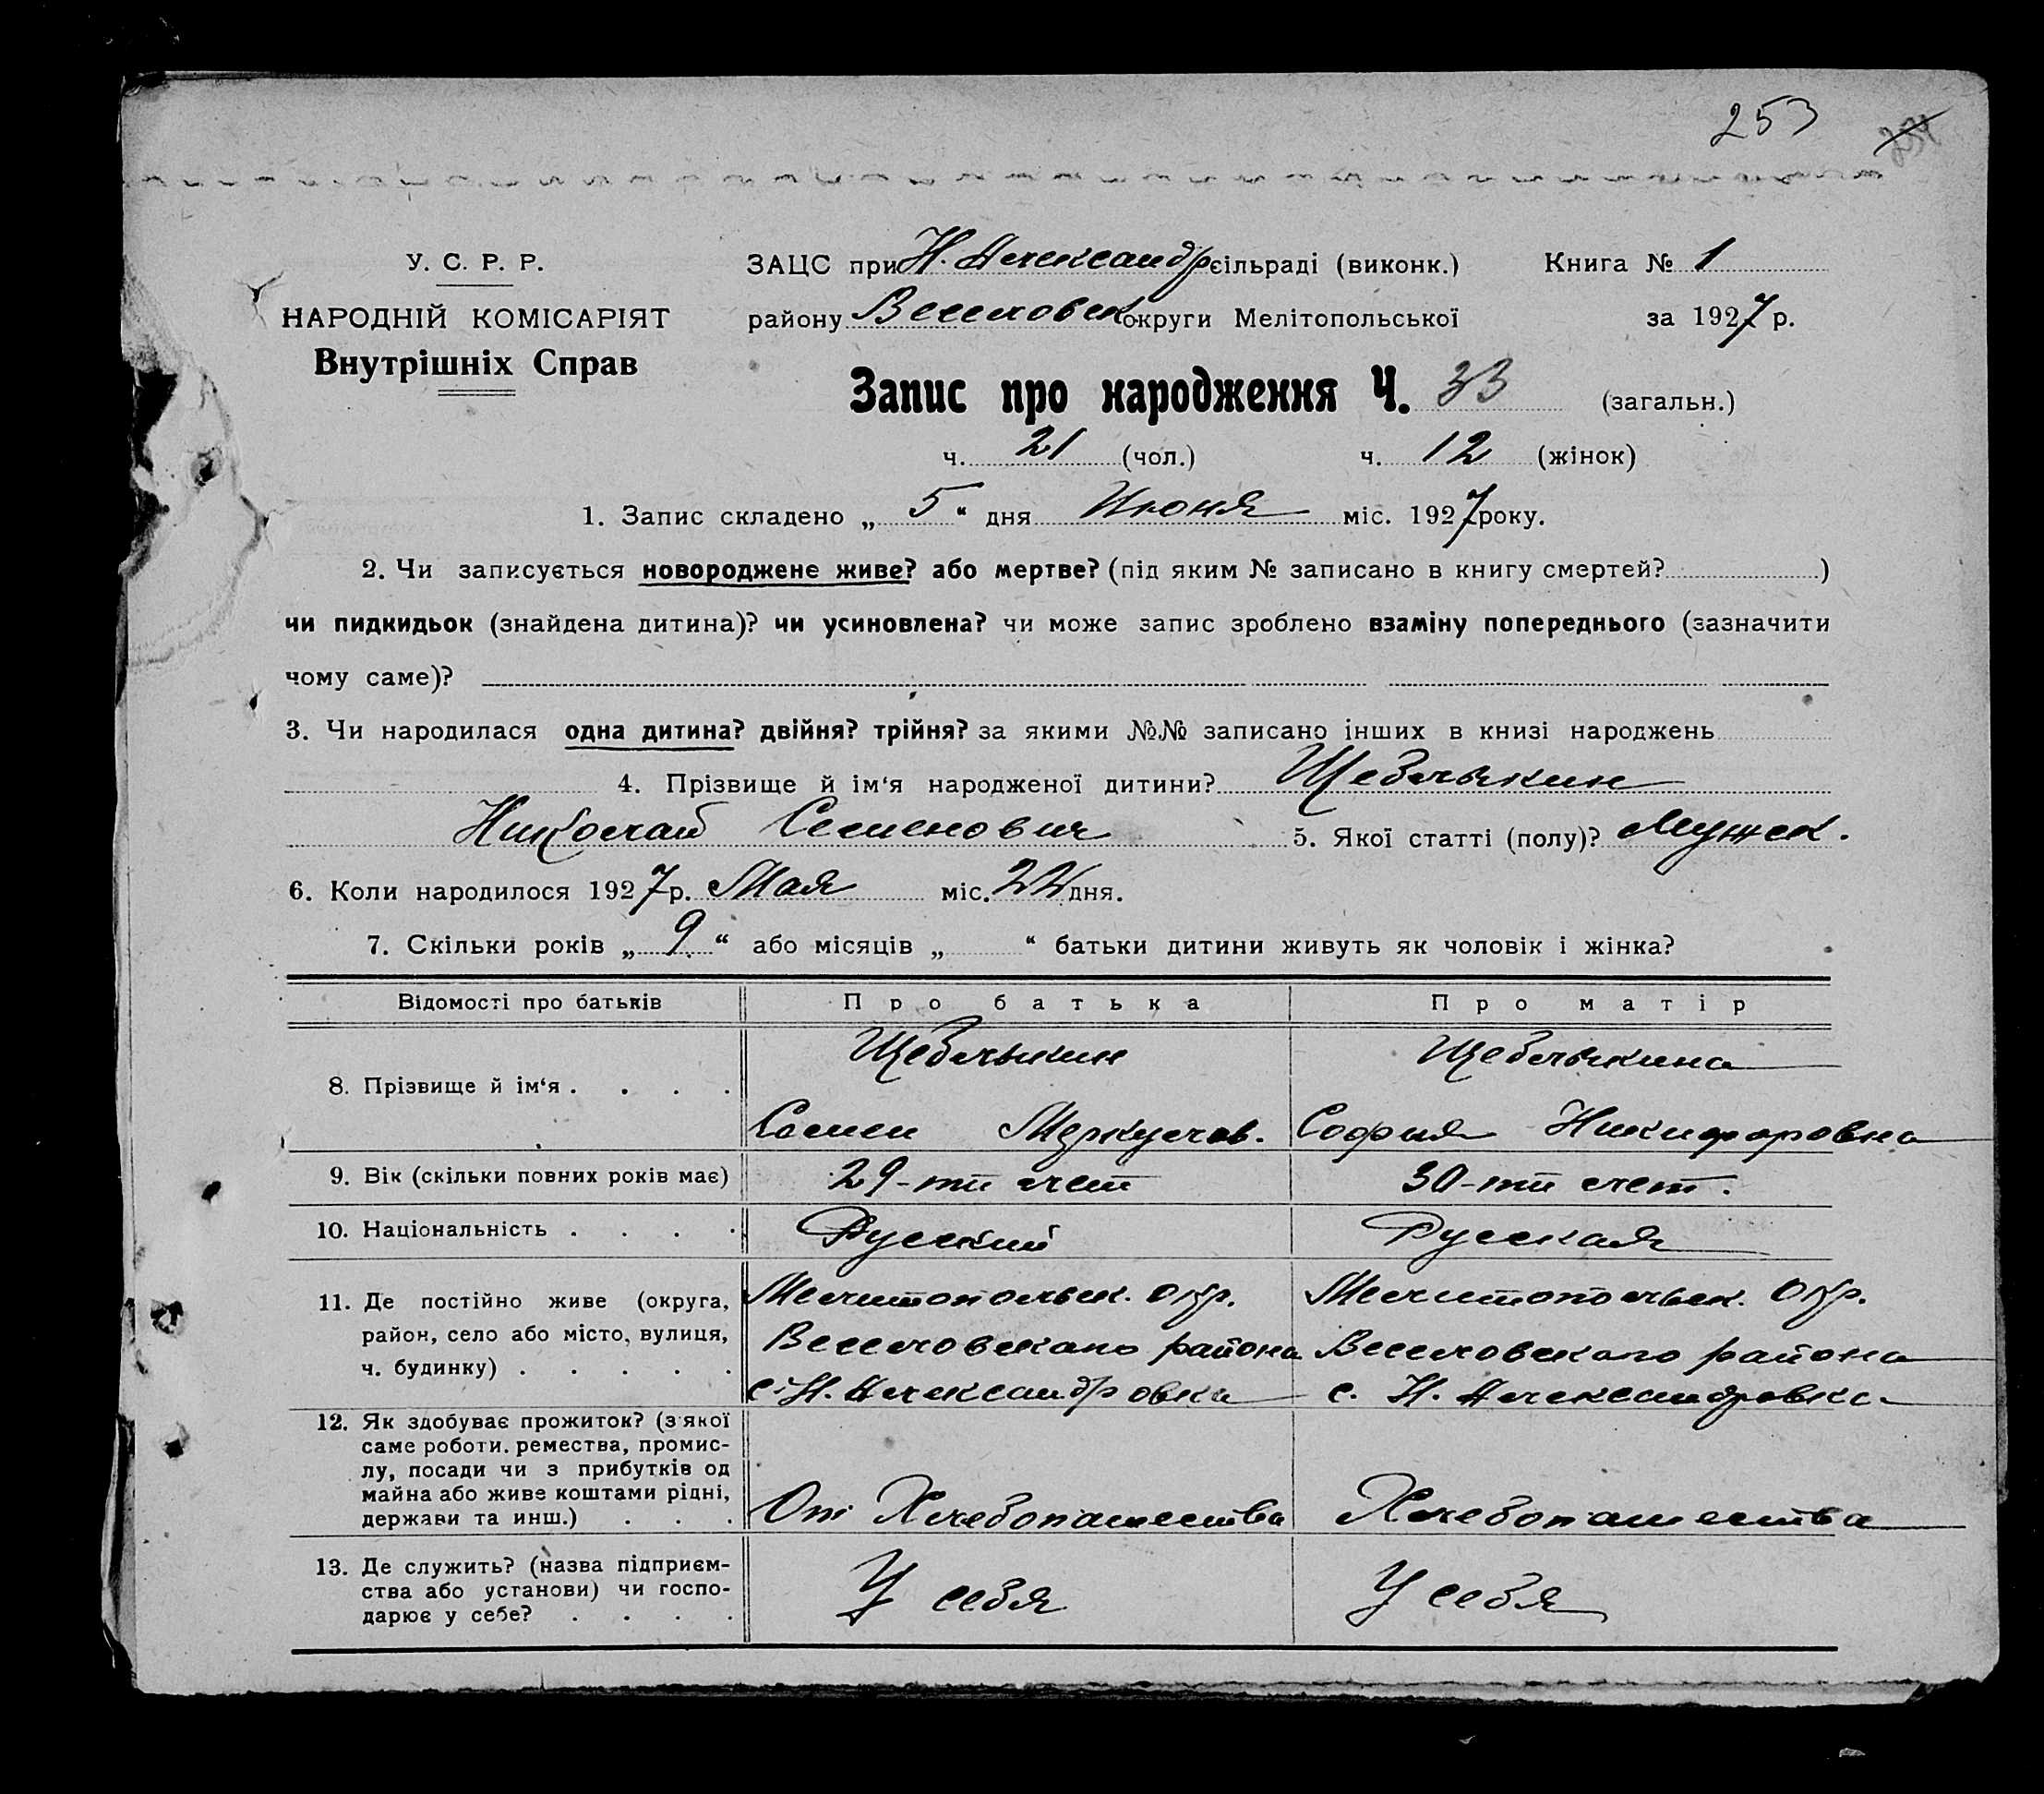 253
254
У. С. Р. Р.
НАРОДНІЙ КОМІСАРІЯТ
Внутрішніх Справ
ЗАЦС при Н. Александр сільраді (виконк.) Книга № 1
району Веселовск округи Мелітопольської за 1927 р.
Запис про народження Ч. 33 (загальн.)
ч. 21 (чол.) ч. 12 (жінок)
1. Запис складено „ 5 “ дня Июня міс. 1927 року.
2. Чи записується новороджене живе? або мертве? (під яким № записано в книгу смертей? )
чи пидкидьок (знайдена дитина)? чи усиновлена? чи може запис зроблено взаміну попереднього (зазначити
чому саме)?
3. Чи народилася одна дитина? двійня? трійня? за якими №№ записано інших в книзі народжень
4. Прізвище й ім‘я народженої дитини? Щебелькин
Николай Семенович 5. Якої статті (полу)? Мужск.
6. Коли народилося 1927 р. Мая міс. 22 дня.
7. Скільки років „ 9 “ або місяців „ “ батьки дитини живуть як чоловік і жінка?
Відомості про батьків Про батька Про матір
8. Прізвище й ім‘я . . . . Щебелькин Щебелькина
Семен Меркулов. София Никифоровна
9. Вік (скільки повних років має) 29-ти лет 30-ти лет.
10. Національність . . . . Русский Русская
11. Де постійно живе (округа, район, село або місто, вулиця, ч. будинку) . . . . . Мелитопольск. Окр. Мелитопольск. Окр.
Веселовскаго района Веселовскаго района
с. Н. Александровка с. Н. Александровка
12. Як здобуває прожиток? (з якої
саме роботи. ремества, промис-
лу, посади чи з прибутків од
майна або живе коштами рідні,
держави та инш.) . . . От Хлебопашества Хлебопашества
13. Де служить? (назва підприєм-
ства або установи) чи госпо-
дарює у себе? . . . . У себя У себя